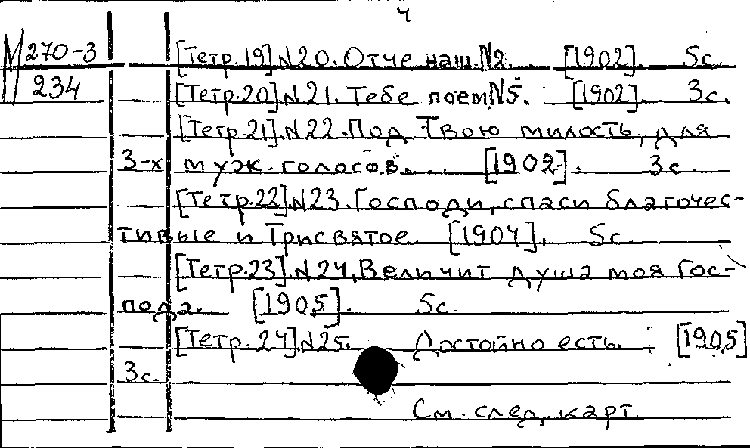 4
М 270-3
234
[Тетр.19] N20. Отче наш. №2. [1902]. 5с.
[Тетр.20] N21. Тебе поем. №5. [1902]. 3с.
[Тетр.21] N22. Под Твою милость, для
3-х муж. голосов. [1902]. 3с.
[Тетр.22] N23. Господи, спаси благочес-
тивые и Трисвятое. [1904]. 5с.
[Тетр.23]. N24. Величит душа моя Гос-
пода. [1905]. 5с.
[Тетр.24] N25. Достойно есть. [1905]
3с.
См. след. карт.